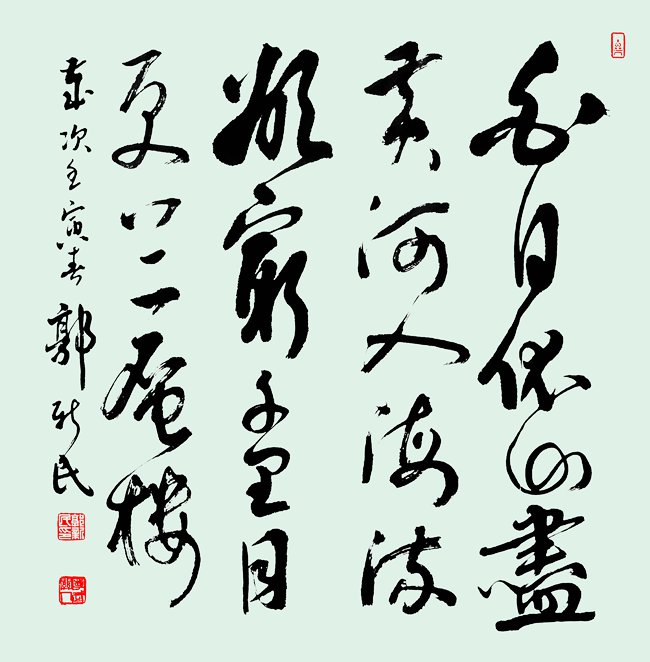 白日依山盡
黃河入海流
欲窮千里目
更上一層樓
歲次壬寅春 郭新民